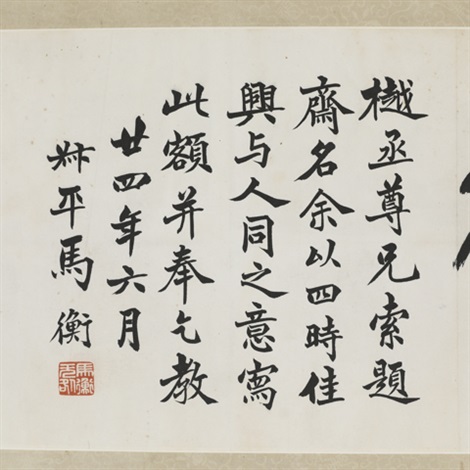 樾丞尊兄索題
齋名余以四時佳
興与人同之意寫
此額并奉乞教
廿四年六月
叔平馬衡